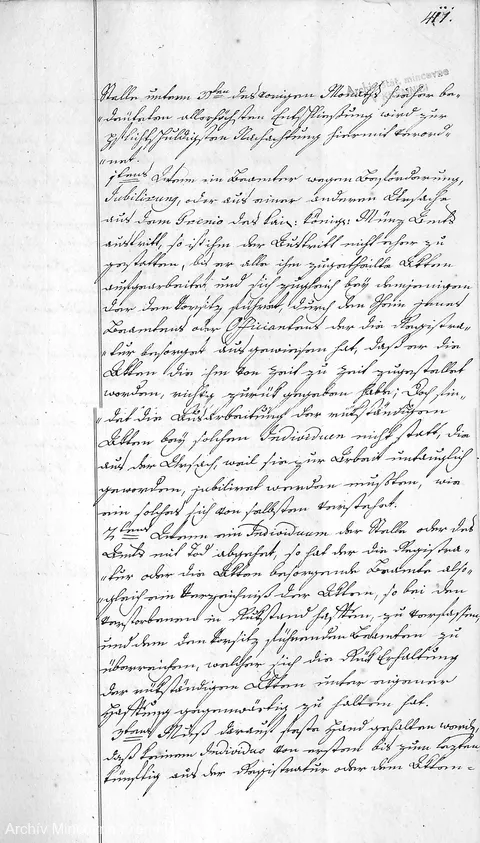 411.
Stelle unterm des vorigen Monaths hieher be-
deuteten allerhöchsten Entschließung wird zur
pflichtschuldigsten Nachachtung hiermit verord-
net.
1tens Wenn ein Beamter wegen Beförderung,
Jubilirung, oder aus einer anderen Ursache
aus dem Gremio des kais. königl: Münz Amts
austritt, so ist ihm der Austritt nicht eher zu
gestatten, bis er alle ihm zugetheilte Akten
ausgearbeitet und sich zugleich bey demjenigen
der den Vorsitz führet, durch den Schein jenes
Beamtens oder Officiantens der die Registra-
tur besorget ausgewiesen hat, daß er die
Akten die ihm von Zeit zu Zeit zugestellet
worden, richtig zurük gegeben habe; Doch fin-
det die Ausarbeitung der rükständigen
Akten bey solchen Individuen nicht statt, die
aus der Ursach, weil sie zur Arbeit untauglich
geworden, jubiliret werden mußten, wie
ein solches sich von selbsten verstehet.
2tens Wenn ein Individuum der Stelle oder des
Amts mit Tod abgehet, so hat der die Registra-
tur oder die Akten besorgende Beamte also-
gleich ein Verzeichniß der Akten, so bei dem
Verstorbenen in Rükstand haften, zu verfassen,
und dem den Vorsitz führenden Beamten zu
überreichen, welcher sich die Rük Erhaltung
der rükständigen Akten unter eigener
Haftung gegenwärtig zu halten hat.
3tens Muß darauf feste Hand gehalten werden,
daß keinem Individuo von ersten bis zum lezten
künftig aus der Registratur oder dem Akten-
Archiv Mincovny Kremnica